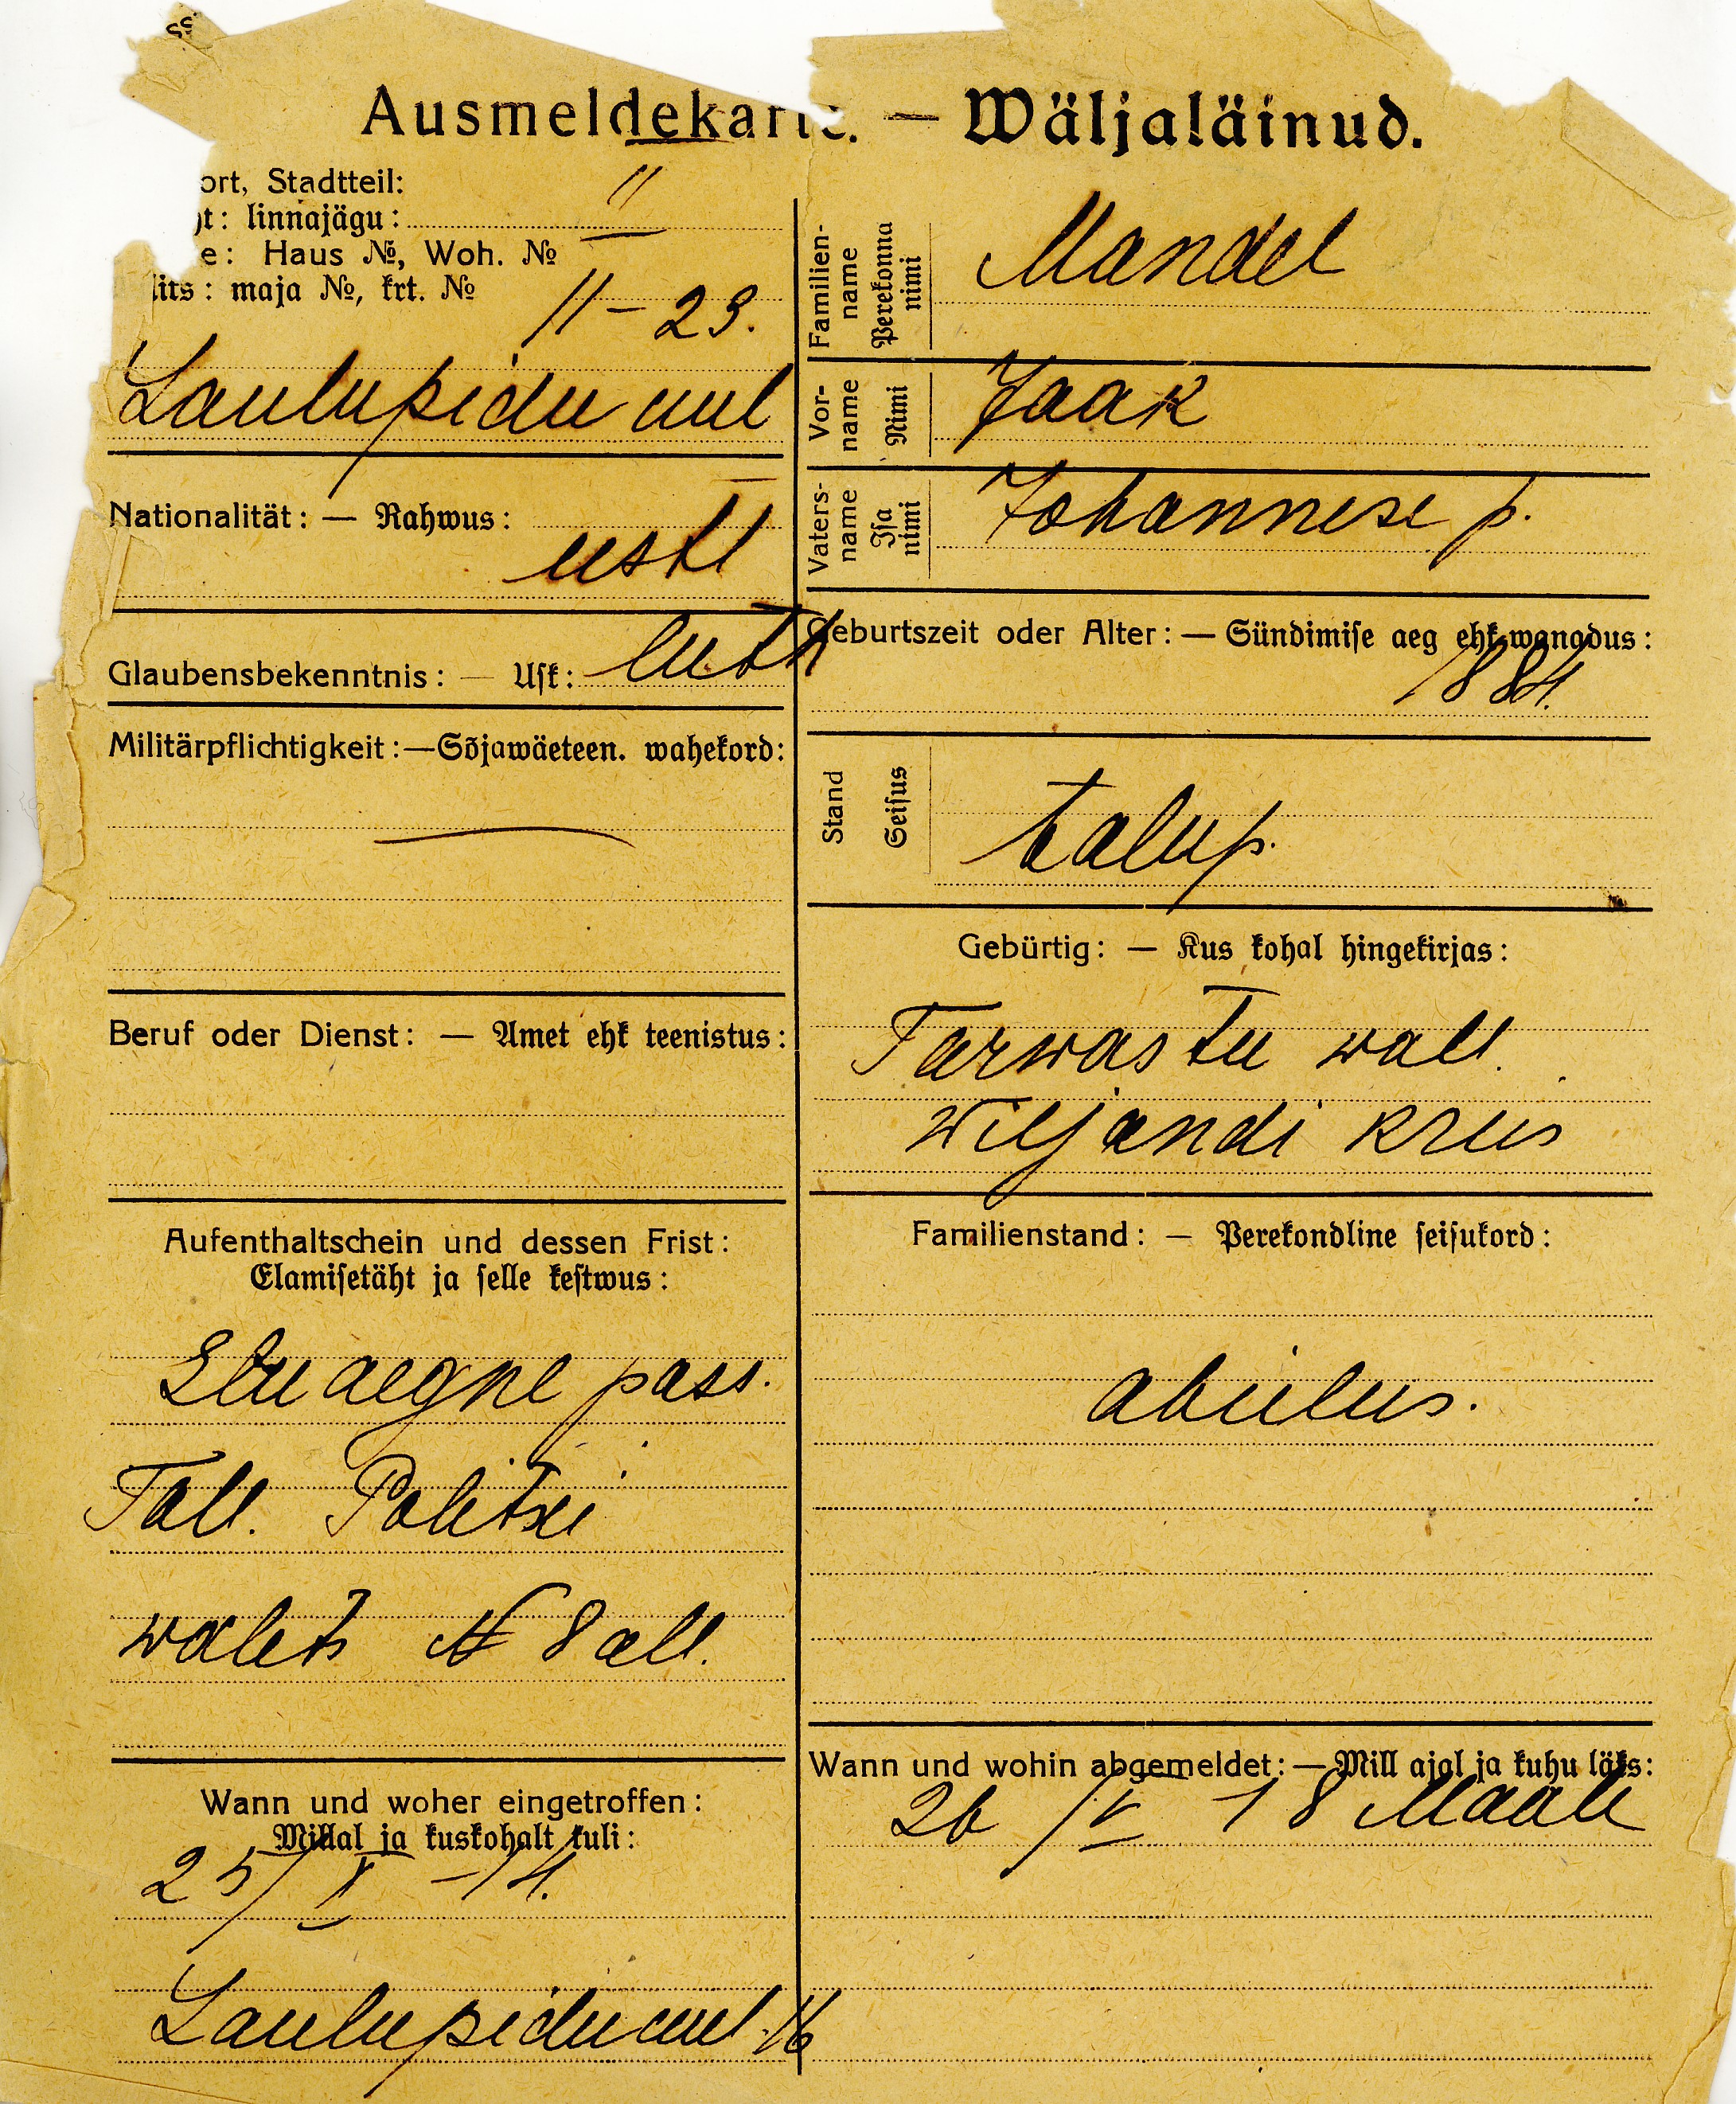 Ausmeldekarte. — Wäljaläinud.
ort, Stadtteil:
linnajägu: II
Haus №, Woh. №
maja №, krt. №
11 – 23.
Laulupidu uul
Nationalität: — Rahwus:
eestl
Glaubensbekenntnis: — Usk: luth
Militärpflichtigkeit:—Sõjawäeteen. wahekord:
Beruf oder Dienst: — Amet ehk teenistus:
Aufenthaltschein und dessen Frist:
Elamisetäht ja selle kestwus:
aegne pass.
Tall. Politsei
walits № 8 all.
Wann und woher eingetroffen:
Millal ja kuskohalt tuli:
25/X –14.
Laulupidu uul. 16
Familien-
name
Perekonna
nimi
Mandel
Vor-
name
Nimi
Jaak
Vaters-
name
Isa
nimi
Johannese p.
Geburtszeit oder Alter: — Sündimise aeg ehk wanadus:
1884.
Stand
Seisus
talup.
Gebürtig: — Kus kohal hingekirjas:
Tarwastu wall.
Wiljandi kreis
Familienstand: — Perekondline seisukord:
abielus.
Wann und wohin abgemeldet:—Mill ajal ja kuhu läks:
26/V –18 Maale